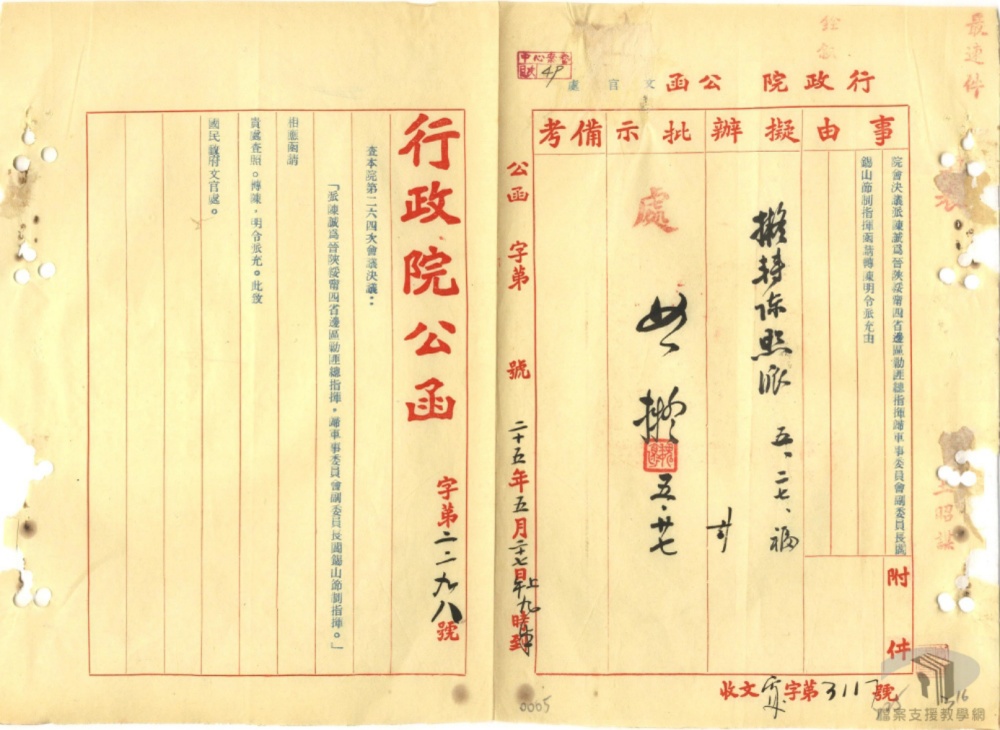 最速件
行政院公函
文官處
事由
擬辦
批示
備考
院會決議派陳誠爲晉陝綏甯四省邊區剿匪總指揮歸軍事委員會副委員長閻
錫山節制指揮函請轉陳明令派充由
附件
擬轉陳照派
五、二七、福
處
如擬
五、廿七
收文 字第3117號
公函 字第 號
二十五年五月二十七日上午九時到
0005
行政院公函
字第二二九八號
查本院第二六四次會議決議：
「派陳誠爲晉陝綏甯四省邊區剿匪總指揮，歸軍事委員會副委員長閻錫山節制指揮。」
相應函請
貴處查照。轉陳，明令派充。此致
國民政府文官處。
檔案支援教學網